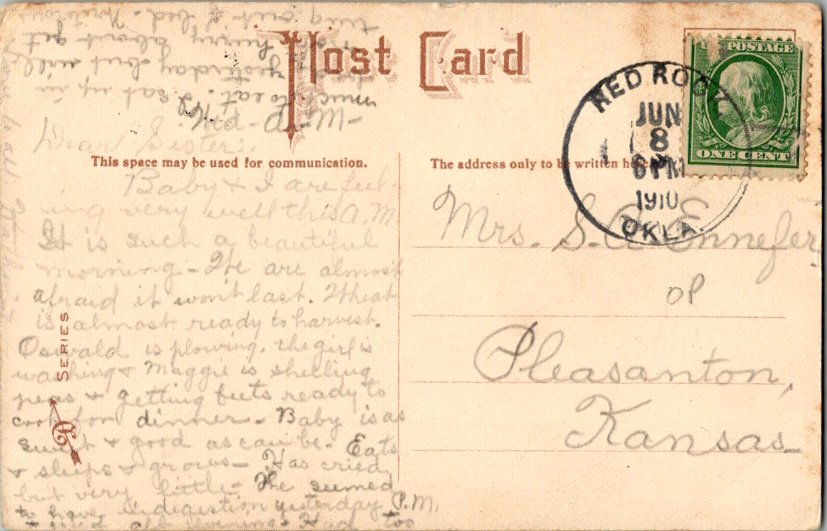 Post Card
This space may be used for communication.
The address only to be written here
POSTAGE
ONE CENT
RED ROCK,
JUN
8
6 PM
1910
OKLA.
Mrs. S. A. Ennefer
Pleasanton,
Kansas
SERIES
Wed - A - M -
Dear Sister:
Baby & I are feel-
ing very well this A.M.
It is such a beautiful
morning - We are almost
afraid it won't last. Wheat
is almost ready to harvest.
Oswald is plowing, the girl is
washing & Maggie is shelling
peas & getting beets ready to
cook for dinner - Baby is as
sweet & good as can be - Eats
& sleeps & grows - Has cried
but very little - He seemed
to have indigestion yesterday P.M.
all evening. Had too
much to eat. I sat up in
yesterday but will
hurry about get
ting out of bed.